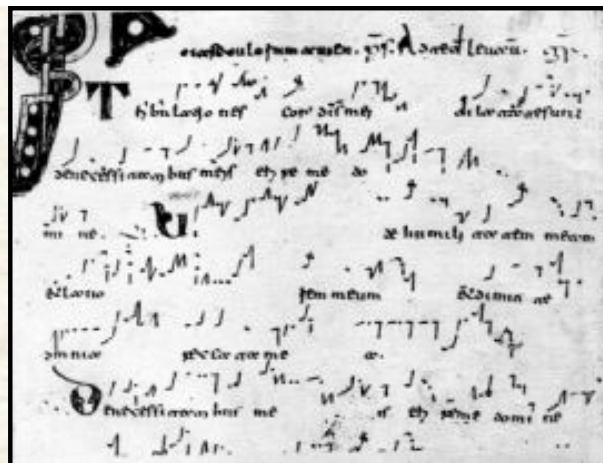 Ps. Ad te levavi
Tribulationes cordis mei dilatate sunt
de necessitatibus meis eripe me do
mine. Vi de humilitatem meam
et laborem meum et dimitte
omnia peccata me a.
De necessitatibus me is eripe me domine